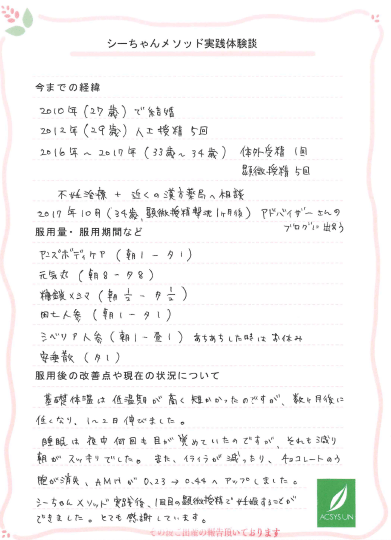 シーちゃんメソッド実践体験談
今までの経緯
2010年(27歳)で結婚
2012年(29歳)人工授精 5回
2016年～2017年(33歳～34歳) 体外受精 1回
顕微授精 5回
不妊治療 + 近くの漢方薬局へ相談
2017年10月(34歳、顕微授精 1ヶ月後) アドバイザーさんの
ブログに出会う
服用量・服用期間など
アニズボディケア (朝1-夕1)
元気丸 (朝8-夕8)
糖鎖 (朝1/2-夕1/2)
田七人参 (朝1-夕1)
シベリア人参 (朝1-昼1) あちあちした時はお休み
安垂散 (夕1)
服用後の改善点や現在の状況について
基礎体温は低温期が高く短かかったのですが、数ヶ月後に
低くなり、1～2日伸びました。
睡眠は夜中何回も目が覚めていたのですが、それも減り
朝がスッキリでした。また、イライラが減ったり、チョコレートのう
胞が消失、AMHが0.23→0.44へアップしました。
シーちゃんメソッド実践後、1回目の顕微授精で妊娠することが
できました。とても感謝しています。
ACSYSUN
そのほかご出産の報告頂いております